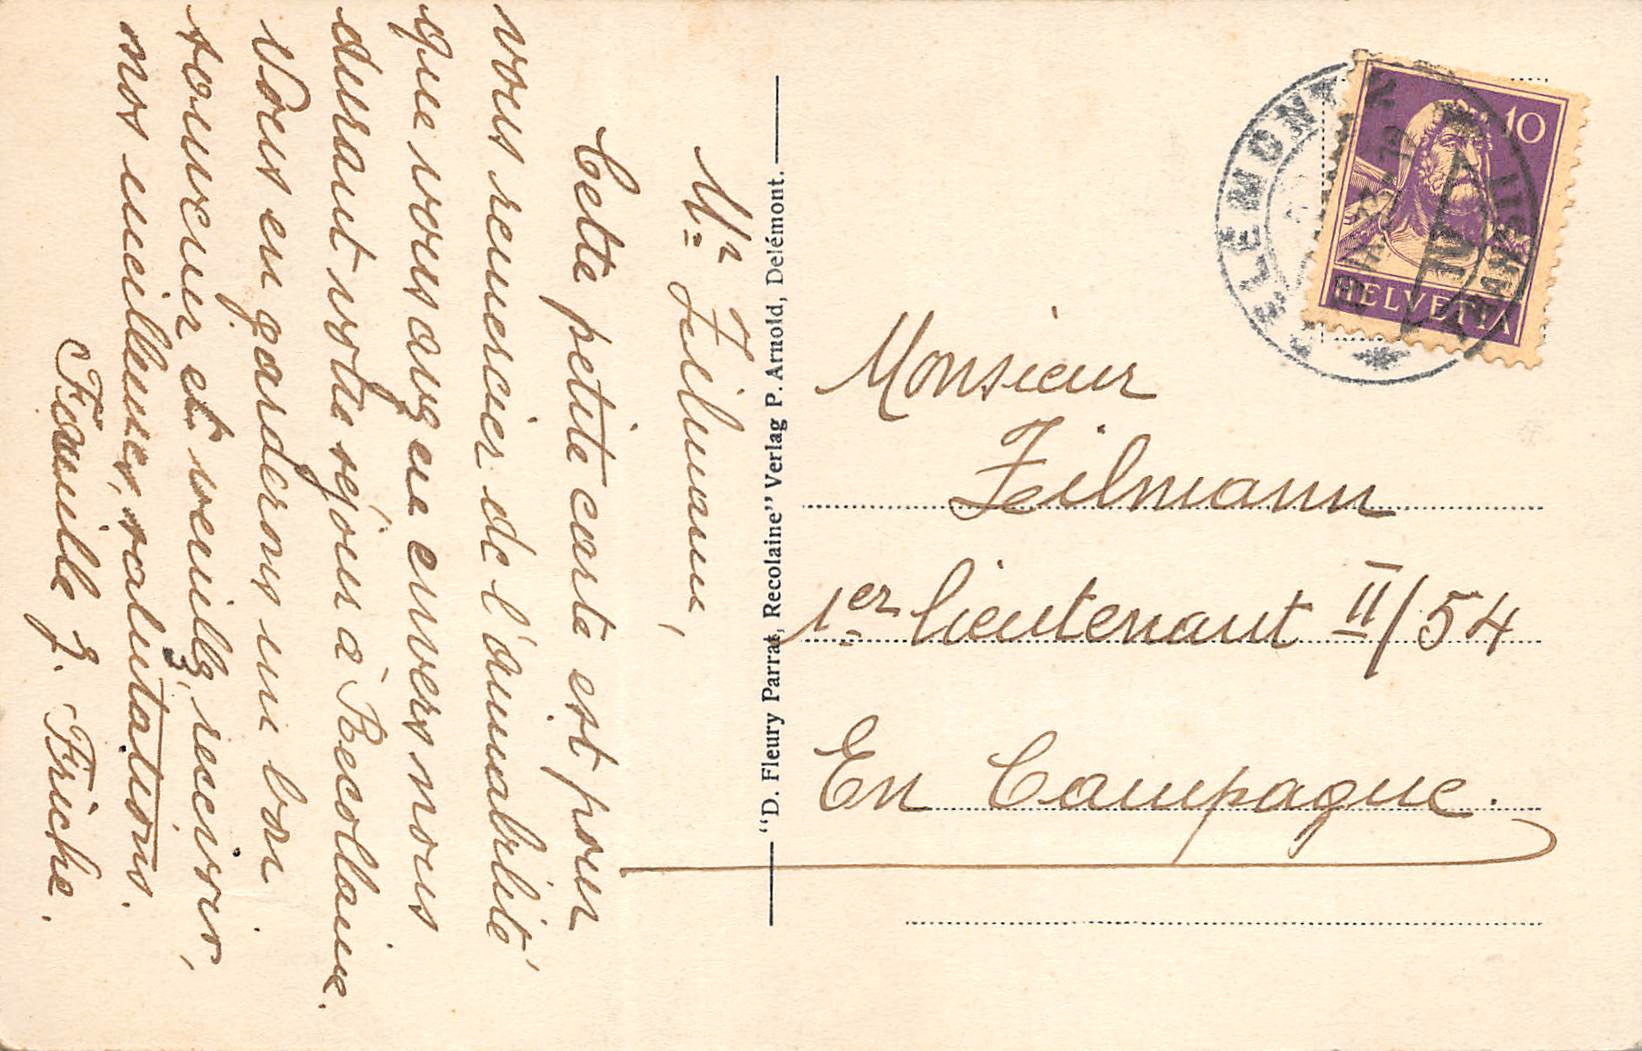 Mr Zeilmann,
Cette petite carte est pour
vous remercier de l'aimabilité
que vous avez eue envers nous
durant votre séjour à Recollaine.
Nous en garderons un bon
souvenir et veuillez, recevoir,
nos meilleures, salutations.
Famille J. Fricke.
"D. Fleury Parrat, Recolaine" Verlag P. Arnold, Delémont.
10
HELVETIA
DELÉMONT
Monsieur
Zeilmann
1er lieutenant II/54
En Campagne.